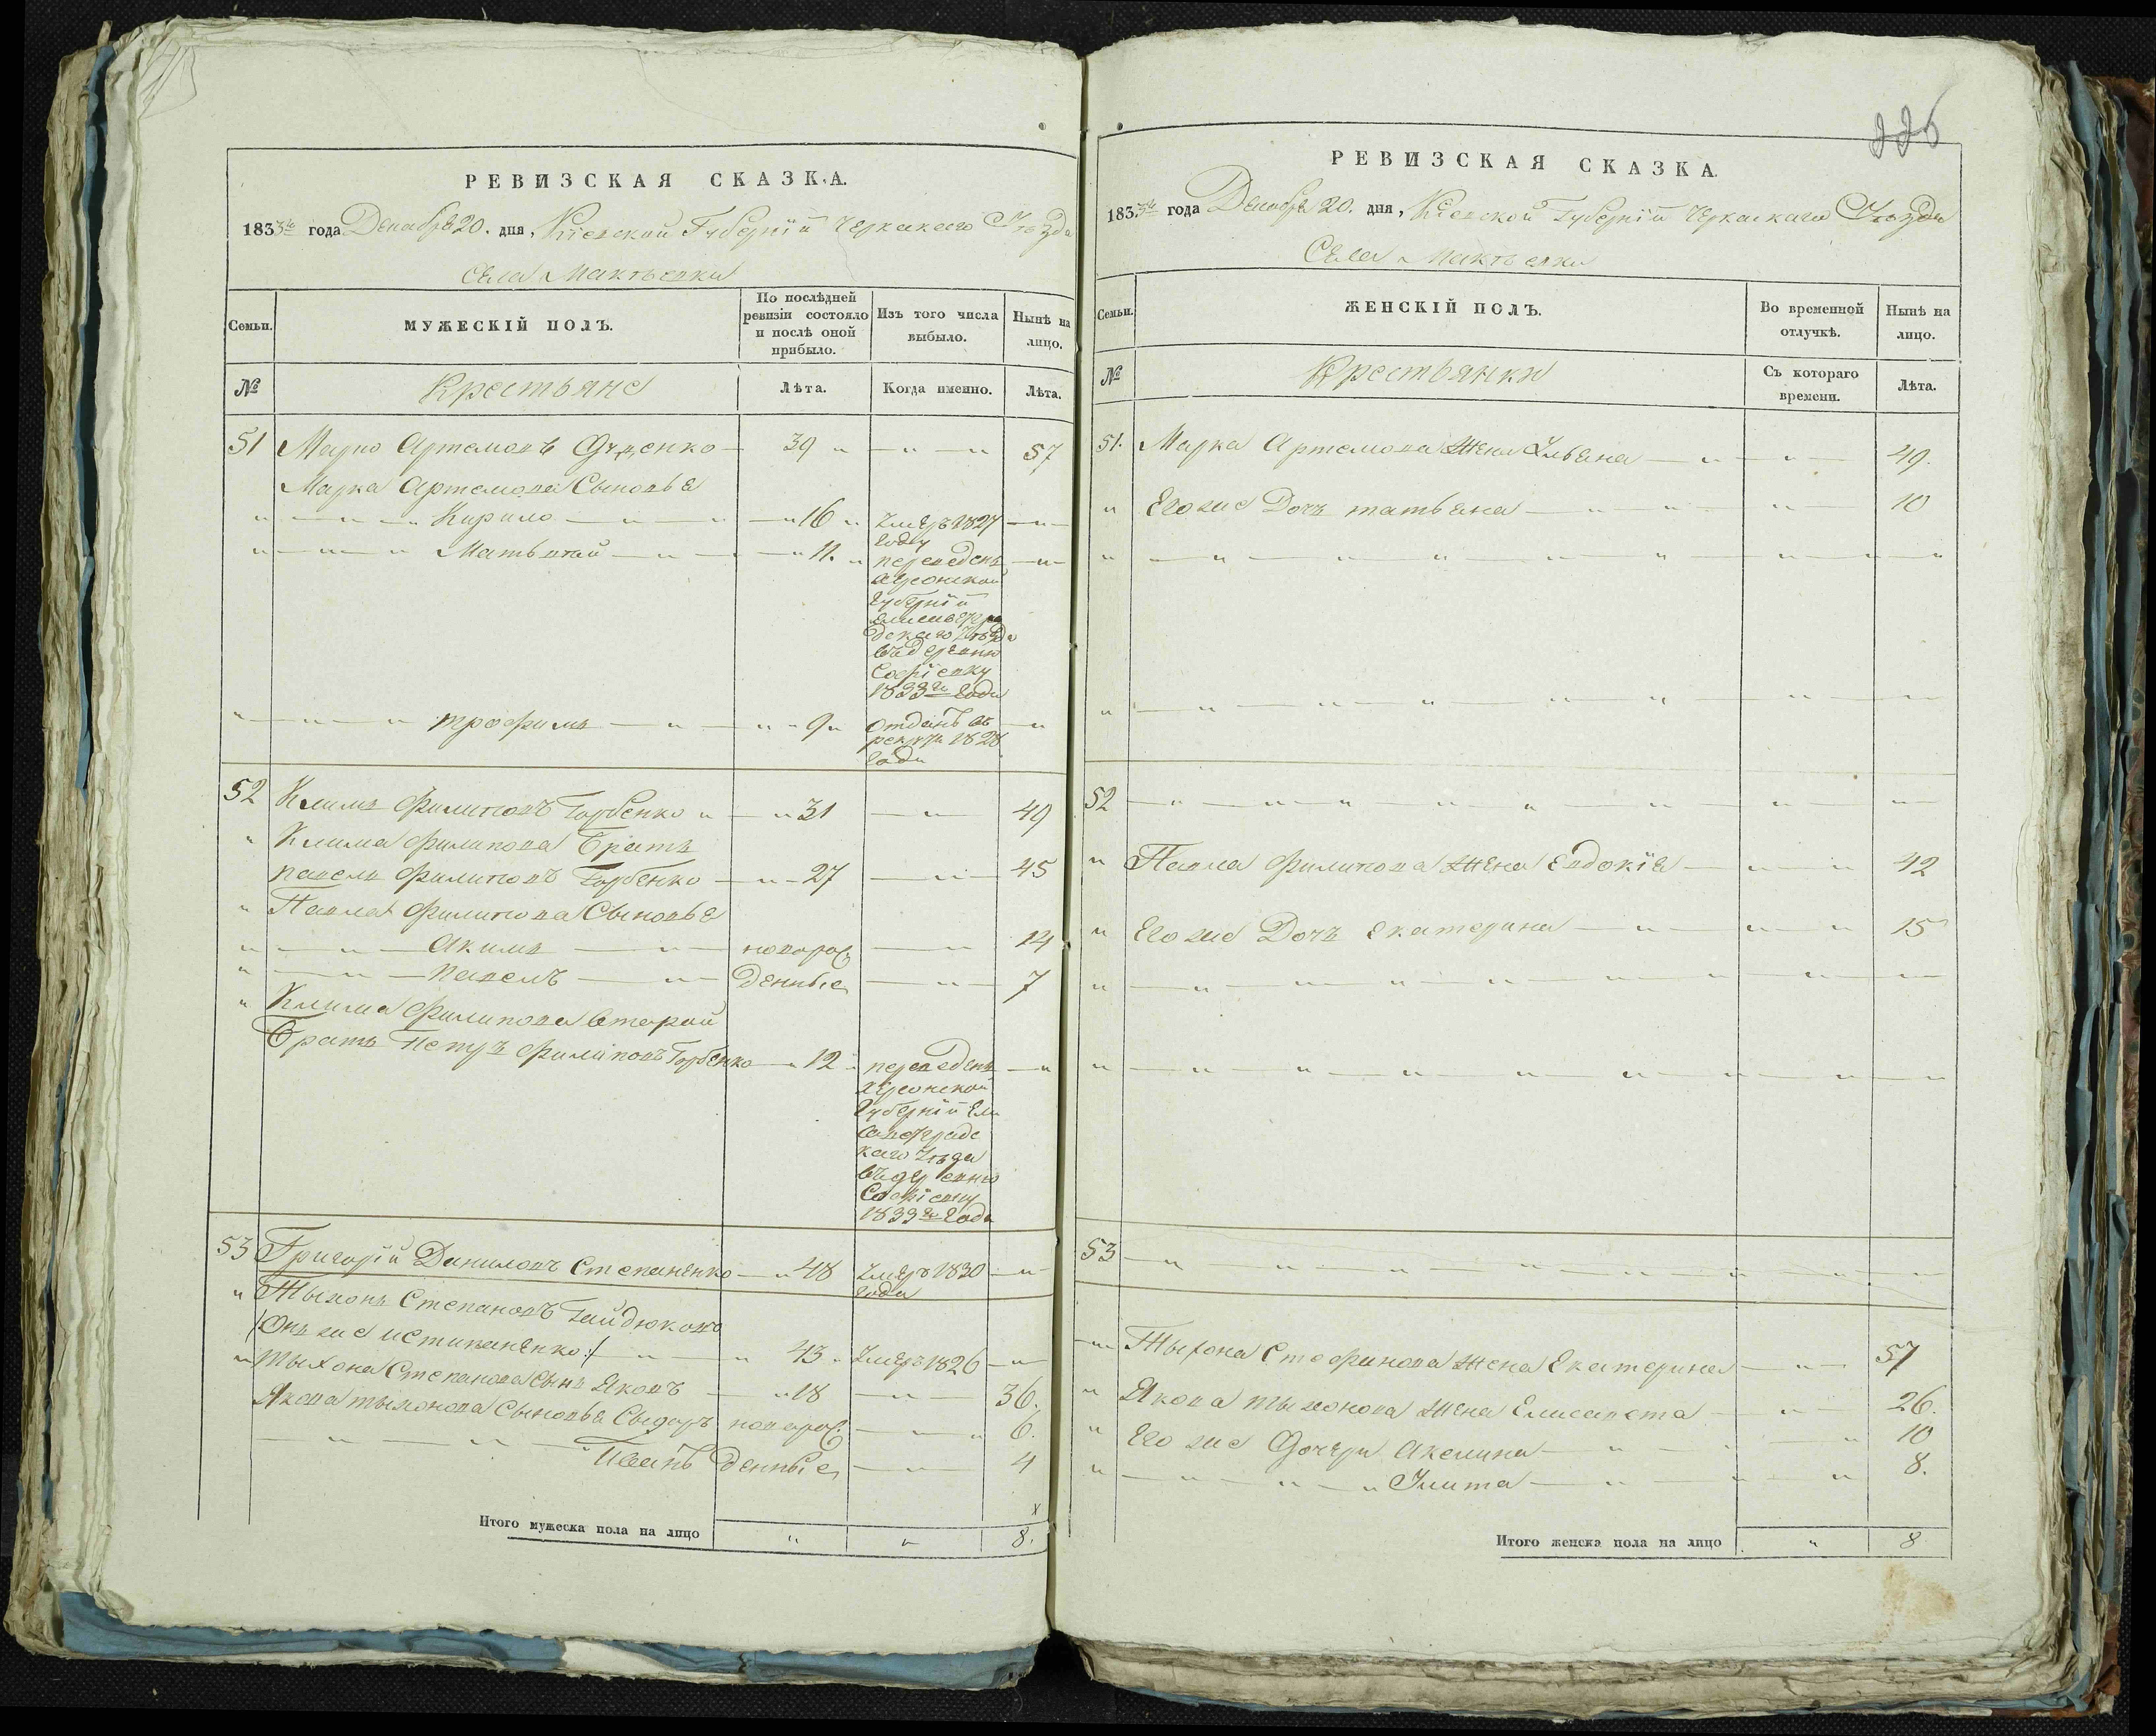 РЕВИЗСКАЯ СКАЗКА.
183 года Декабря 20. дня, Кіевской Губерніи Черкаскаго Уѣзда
Села Макѣевки
Семьи.
МУЖЕСКІЙ ПОЛЪ.
По послѣдней ревизіи состояло и послѣ оной прибыло.
Изъ того числа выбыло.
Нынѣ на лицо.
№
Крестьяне
Лѣта.
Когда именно.
Лѣта.
51 Марко Артемовъ 39 57
Марка Артемова Сыновья
Кирило 16 Умеръ 1827
году
Матьвей 11. переведенъ
Херсонской
Губерніи
Уѣзда
въ деревню
Софіевку
1833го года
трофимъ 9 Отданъ въ
рекруты 1828
года
52 Климъ Филиповъ Горбенко 31 49
Клима Филипова Братъ
павелъ Филиповъ Горбенко 27 45
Павла Филипова Сыновья
Акимъ новорож 14
павелъ денные 7
Клима Филипова второй
Братъ Петръ Филиповъ Горбенко 12 переведенъ
Херсонской
Губерніи Ели
саветградс
каго Уѣзда
въ деревню
Софіевку
1833го года
53 Григорій Даниловъ Степаненко 48 Умеръ 1830
года
Тыхонъ Степановъ Гайдюковъ
/Онъ же и Стипаненко:/ 43 Умеръ 1826
Тыхона Степанова Сынъ Яковъ 18 36.
Якова тыхонова Сыновья Сыдоръ новорож 6.
Иванъ денные 4
Итого мужеска пола на лицо 8.
226
РЕВИЗСКАЯ СКАЗКА.
183 года Декабря 20. дня, Кіевской Губерніи Черкаскаго Уѣзда
Села Макѣевки
Семьи.
ЖЕНСКІЙ ПОЛЪ.
Во временной отлучкѣ.
Нынѣ на лицо.
№
Крестьянки
Съ котораго времени.
Лѣта.
51. Марка Артемова жена Ульяна 49.
Его же Дочь татьяна 10
52
Павла Филипова жена Евдокія 42
Его же Дочь Екатерина 15
53
Тыхона жена Екатерина 57
Якова тыхонова жена Елисавета 26.
Его же Дочери Акелина 10
Улита 8.
Итого женска пола на лицо 8